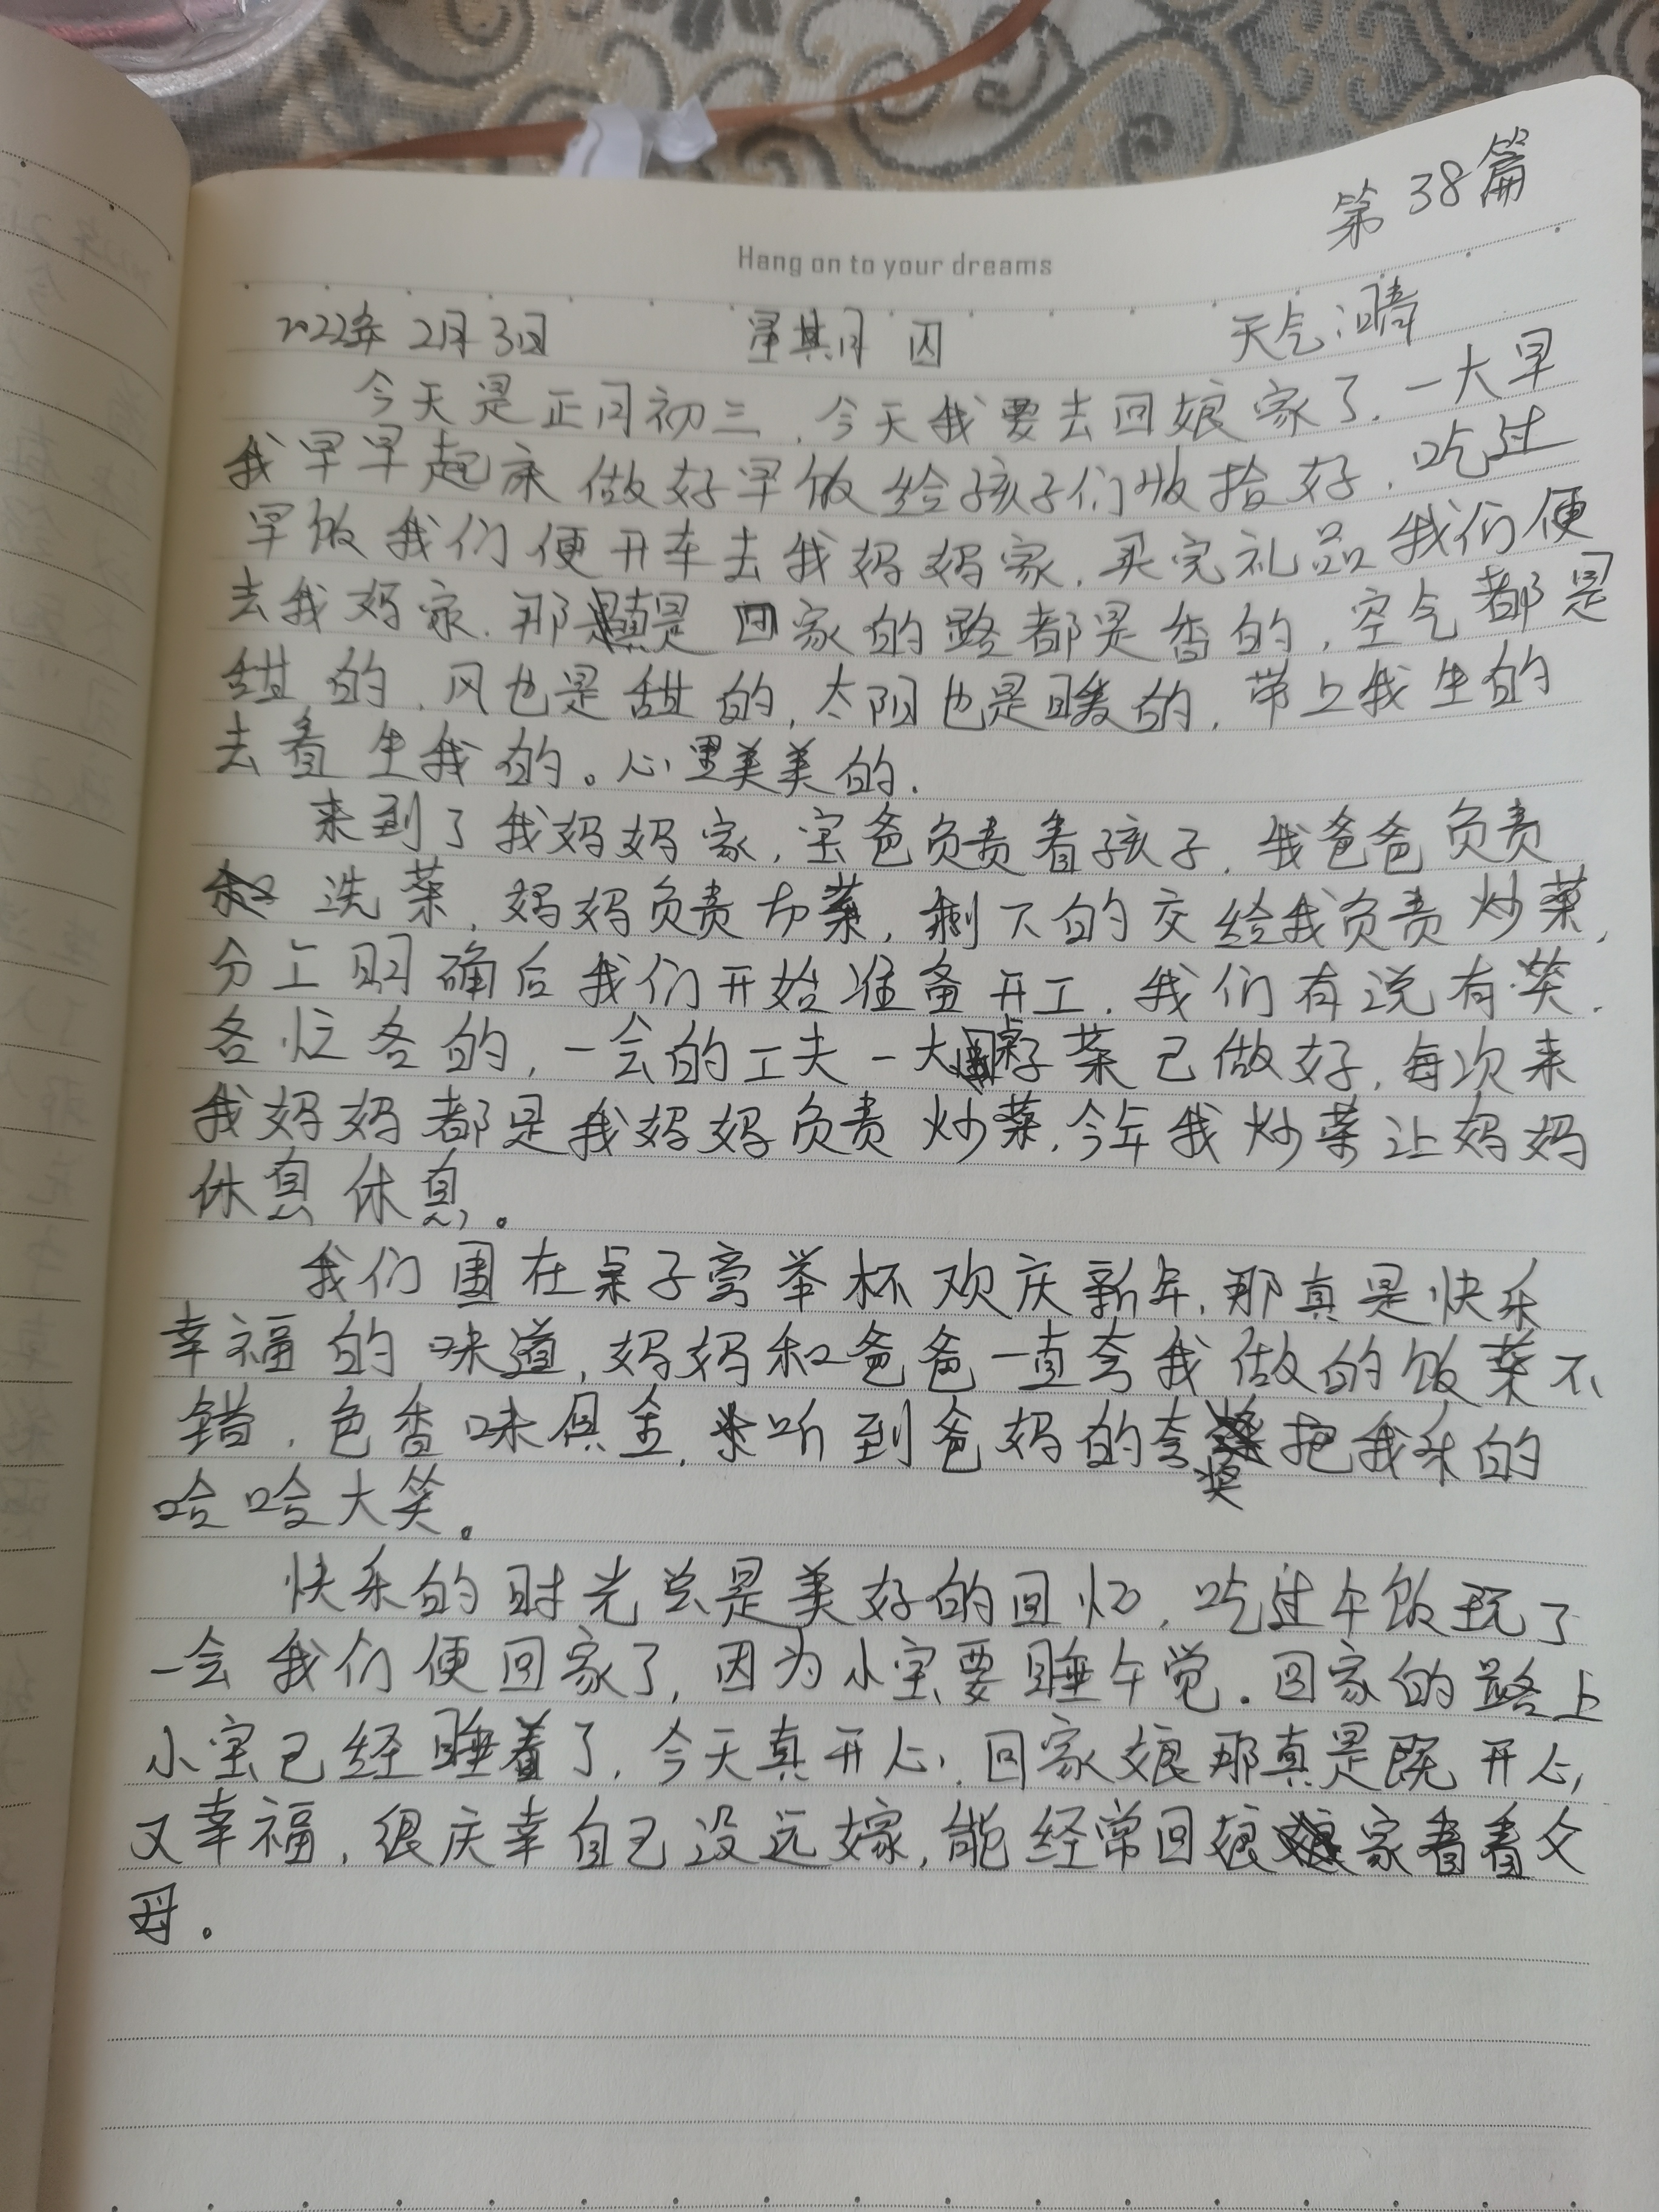 第38篇
Hang on to your dreams
2022年 2月3日 星期 四 天气:晴
今天是正月初三,今天我要去回娘家了.一大早
我早早起床做好早饭给孩子们收拾好.吃过
早饭我们便开车去我妈妈家.买完礼品我们便
去我妈家.那真是回家的路都是香的,空气都是
甜的,风也是甜的,太阳也是暖的,带上我生的
去看生我的。心里美美的.
来到了我妈妈家,宝爸负责看孩子.我爸爸负责
洗菜,妈妈负责切菜,剩下的交给我负责炒菜,
分工明确后我们开始准备开工.我们有说有笑.
各忙各的,一会的工夫一大桌子菜已做好,每次来
我妈妈都是我妈妈负责炒菜.今年我炒菜让妈妈
休息休息。
我们围在桌子旁举杯欢庆新年,那真是快乐
幸福的味道,妈妈和爸爸一直夸我做的饭菜不
错.色香味俱全.听到爸妈的夸奖把我乐的
哈哈大笑。
快乐的时光总是美好的回忆,吃过午饭玩了
一会我们便回家了,因为小宝要睡午觉.回家的路上
小宝已经睡着了,今天真开心,回家娘那真是既开心
又幸福,很庆幸自己没远嫁,能经常回娘家看看父
母。